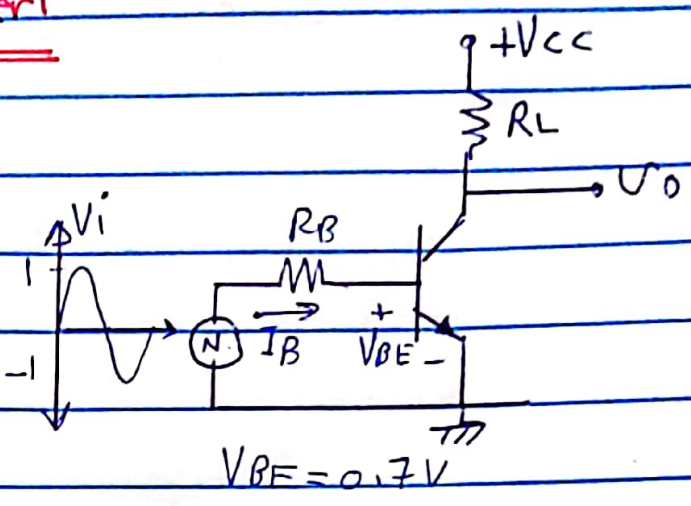 +Vcc
RL
Vo
Vi
RB
1
+
IB
VBE
-
-1
VBE = 0.7V